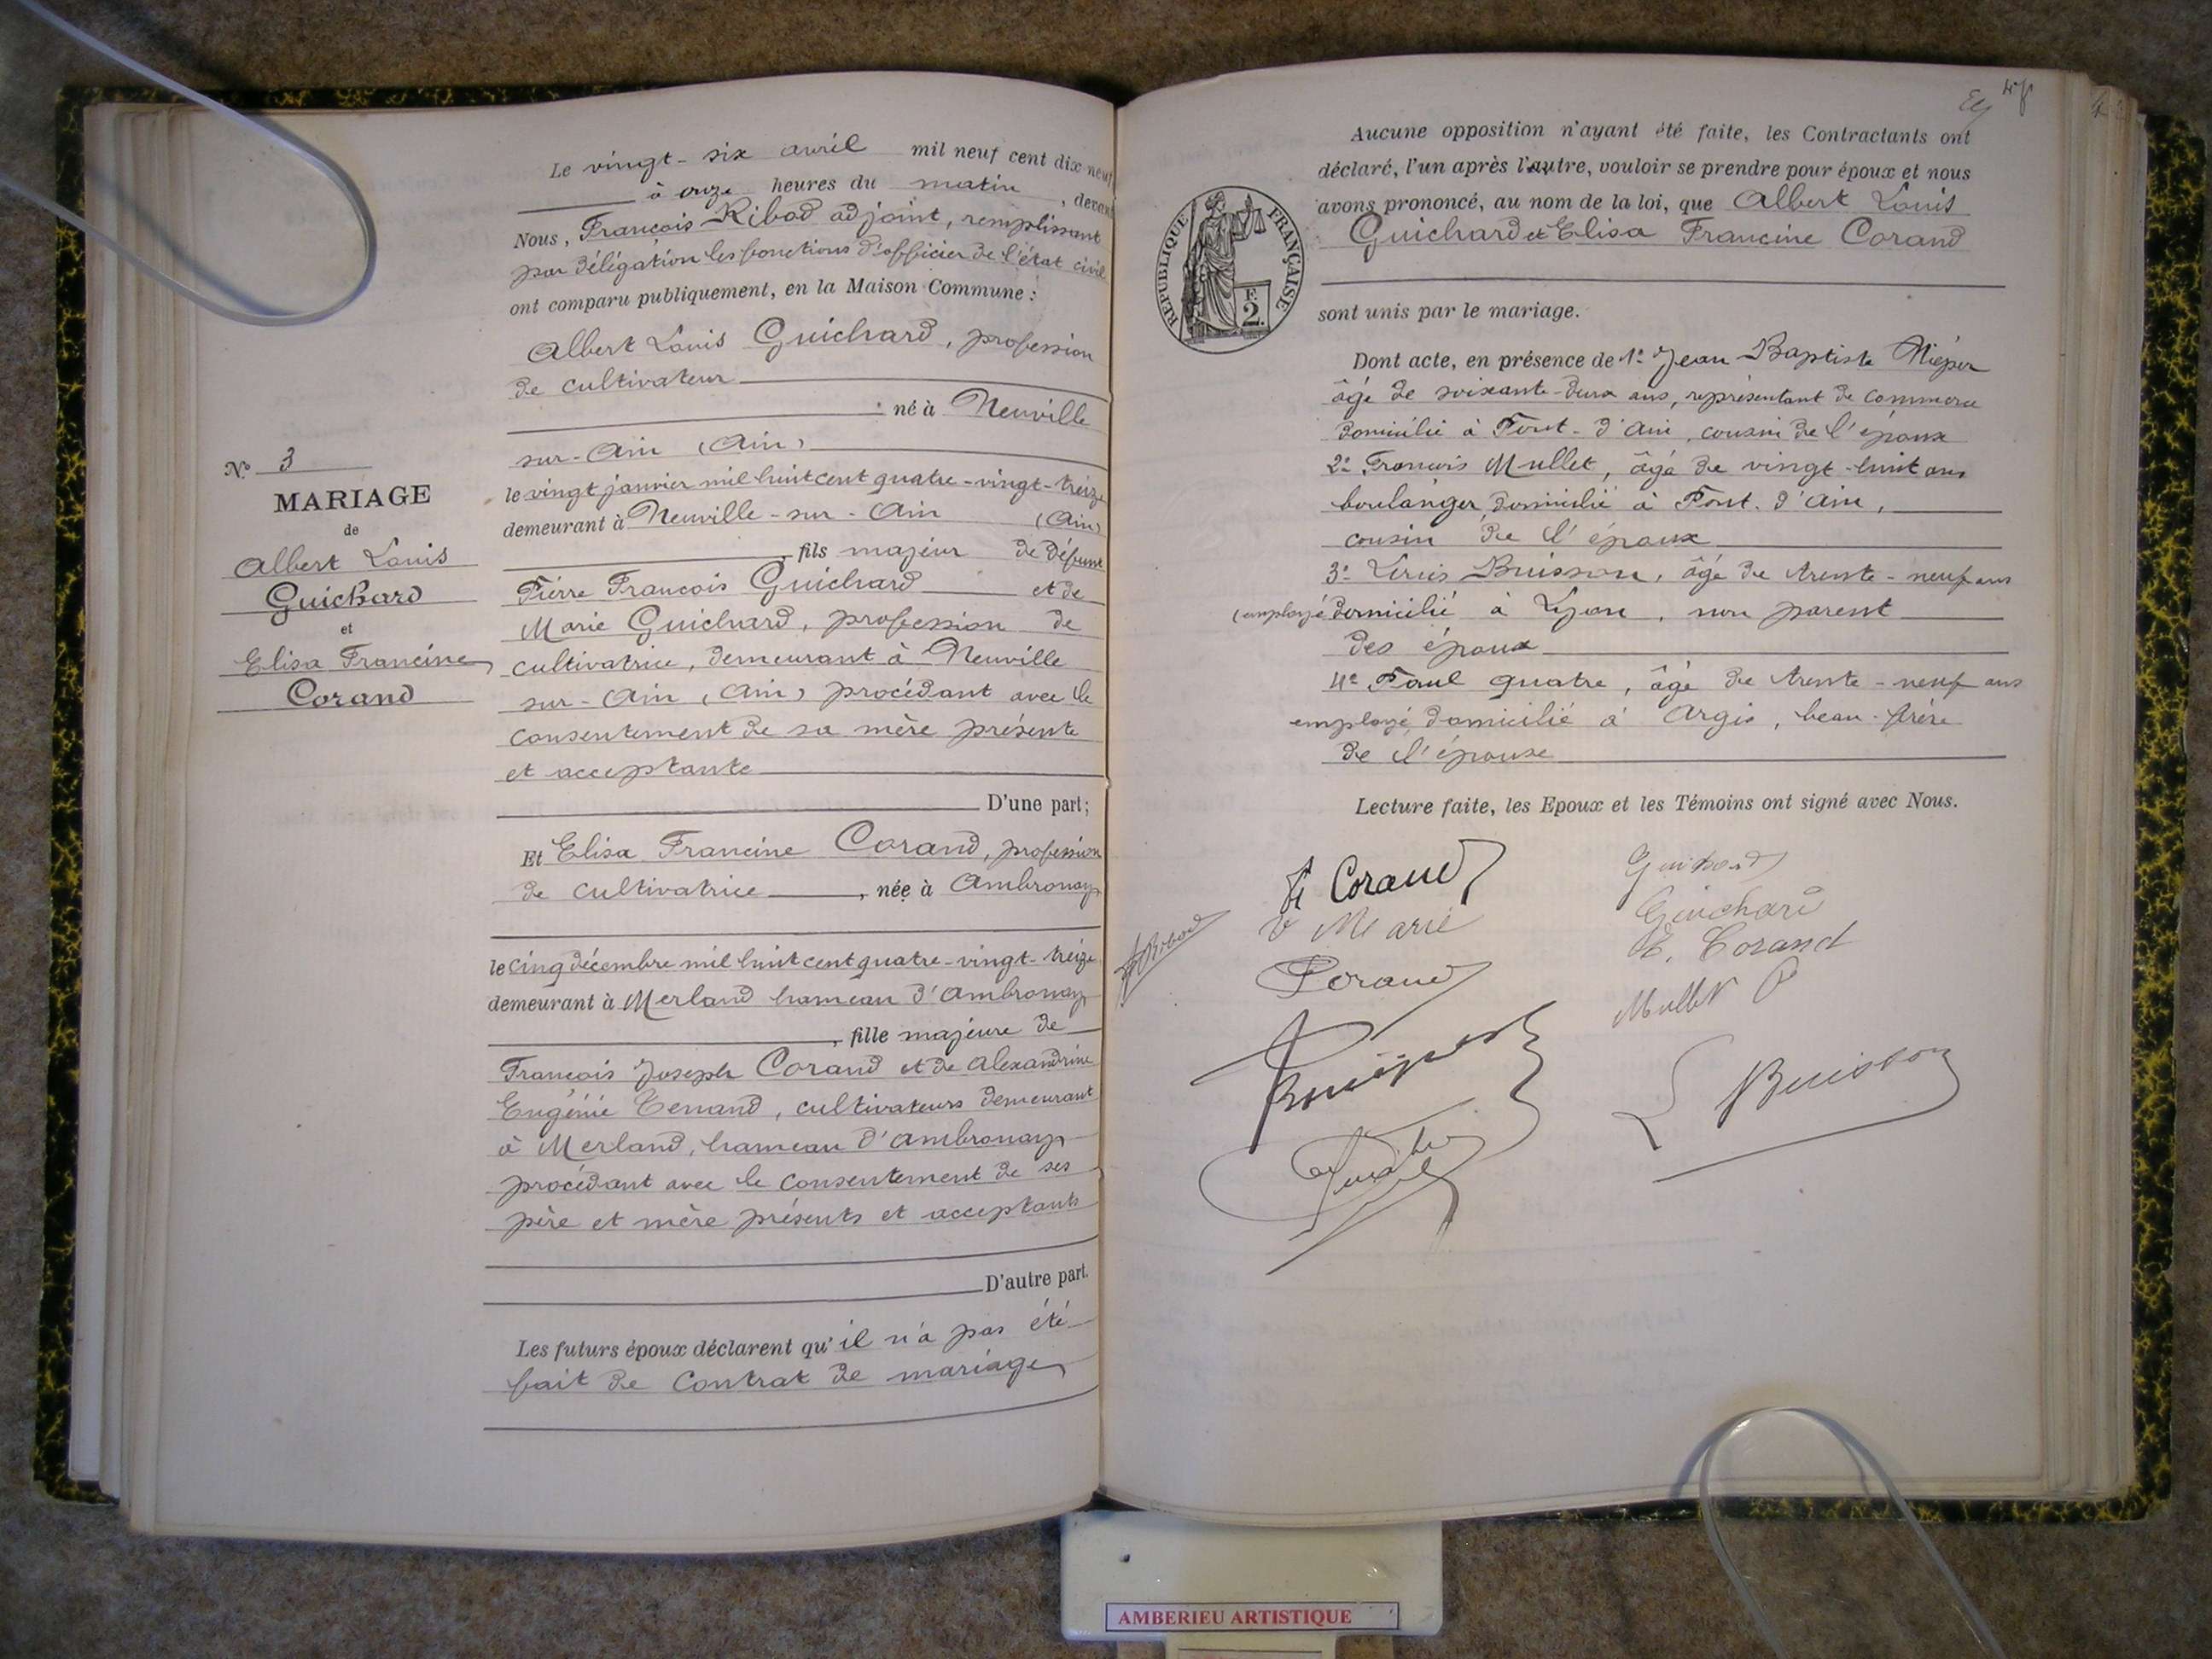 Le vingt-six avril mil neuf cent dix neuf
à onze heures du matin, devant
Nous, François Ribod adjoint, remplissant
par délégation les fonctions d'officier de l'état civil
ont comparu publiquement, en la Maison Commune :
Albert Louis Guichard, profession
de cultivateur
né à Neuville
sur-Ain (Ain)
le vingt janvier mil huit cent quatre-vingt-treize
demeurant à Neuville-sur-Ain (Ain)
, fils majeur de défunt
Pierre François Guichard et de
Marie Guichard, profession de
cultivatrice, demeurant à Neuville
sur-Ain (Ain) procédant avec le
consentement de sa mère présente
et acceptante
D'une part;
Et Elisa Francine Corand, profession
de cultivatrice, née à Ambronay
le cinq décembre mil huit cent quatre-vingt-treize
demeurant à Merland hameau d'Ambronay
, fille majeure de
François Joseph Corand et de Alexandrine
Eugénie Tenand, cultivateurs demeurant
à Merland, hameau d'Ambronay
procédant avec le consentement de ses
père et mère présents et acceptants
D'autre part.
Les futurs époux déclarent qu'il n'a pas été
fait de contrat de mariage
N° 3
MARIAGE
de
Albert Louis
Guichard
et
Elisa Francine
Corand
Aucune opposition n'ayant été faite, les Contractants ont
déclaré, l'un après l'autre, vouloir se prendre pour époux et nous
avons prononcé, au nom de la loi, que Albert Louis
Guichard et Elisa Francine Corand
sont unis par le mariage.
REPUBLIQUE FRANÇAISE
F. 2.
Dont acte, en présence de 1° Jean Baptiste
âgé de soixante-deux ans, représentant de commerce
domicilié à Pont-d'Ain, cousin de l'époux
2° François Mullet, âgé de vingt-huit ans
boulanger, domicilié à Pont-d'Ain,
cousin de l'époux
3° Louis Buisson, âgé de trente-neuf ans
(employé domicilié à Lyon, non parent
des époux
4° Paul Quatre, âgé de trente-neuf ans
employé, domicilié à Argis, beau-frère
de l'épouse
Lecture faite, les Epoux et les Témoins ont signé avec Nous.
Corand
Guichard
Marie
Guichard
E. Corand
F Ribod
Corand
Mullet
L Buisson
Quatre
AMBERIEU ARTISTIQUE